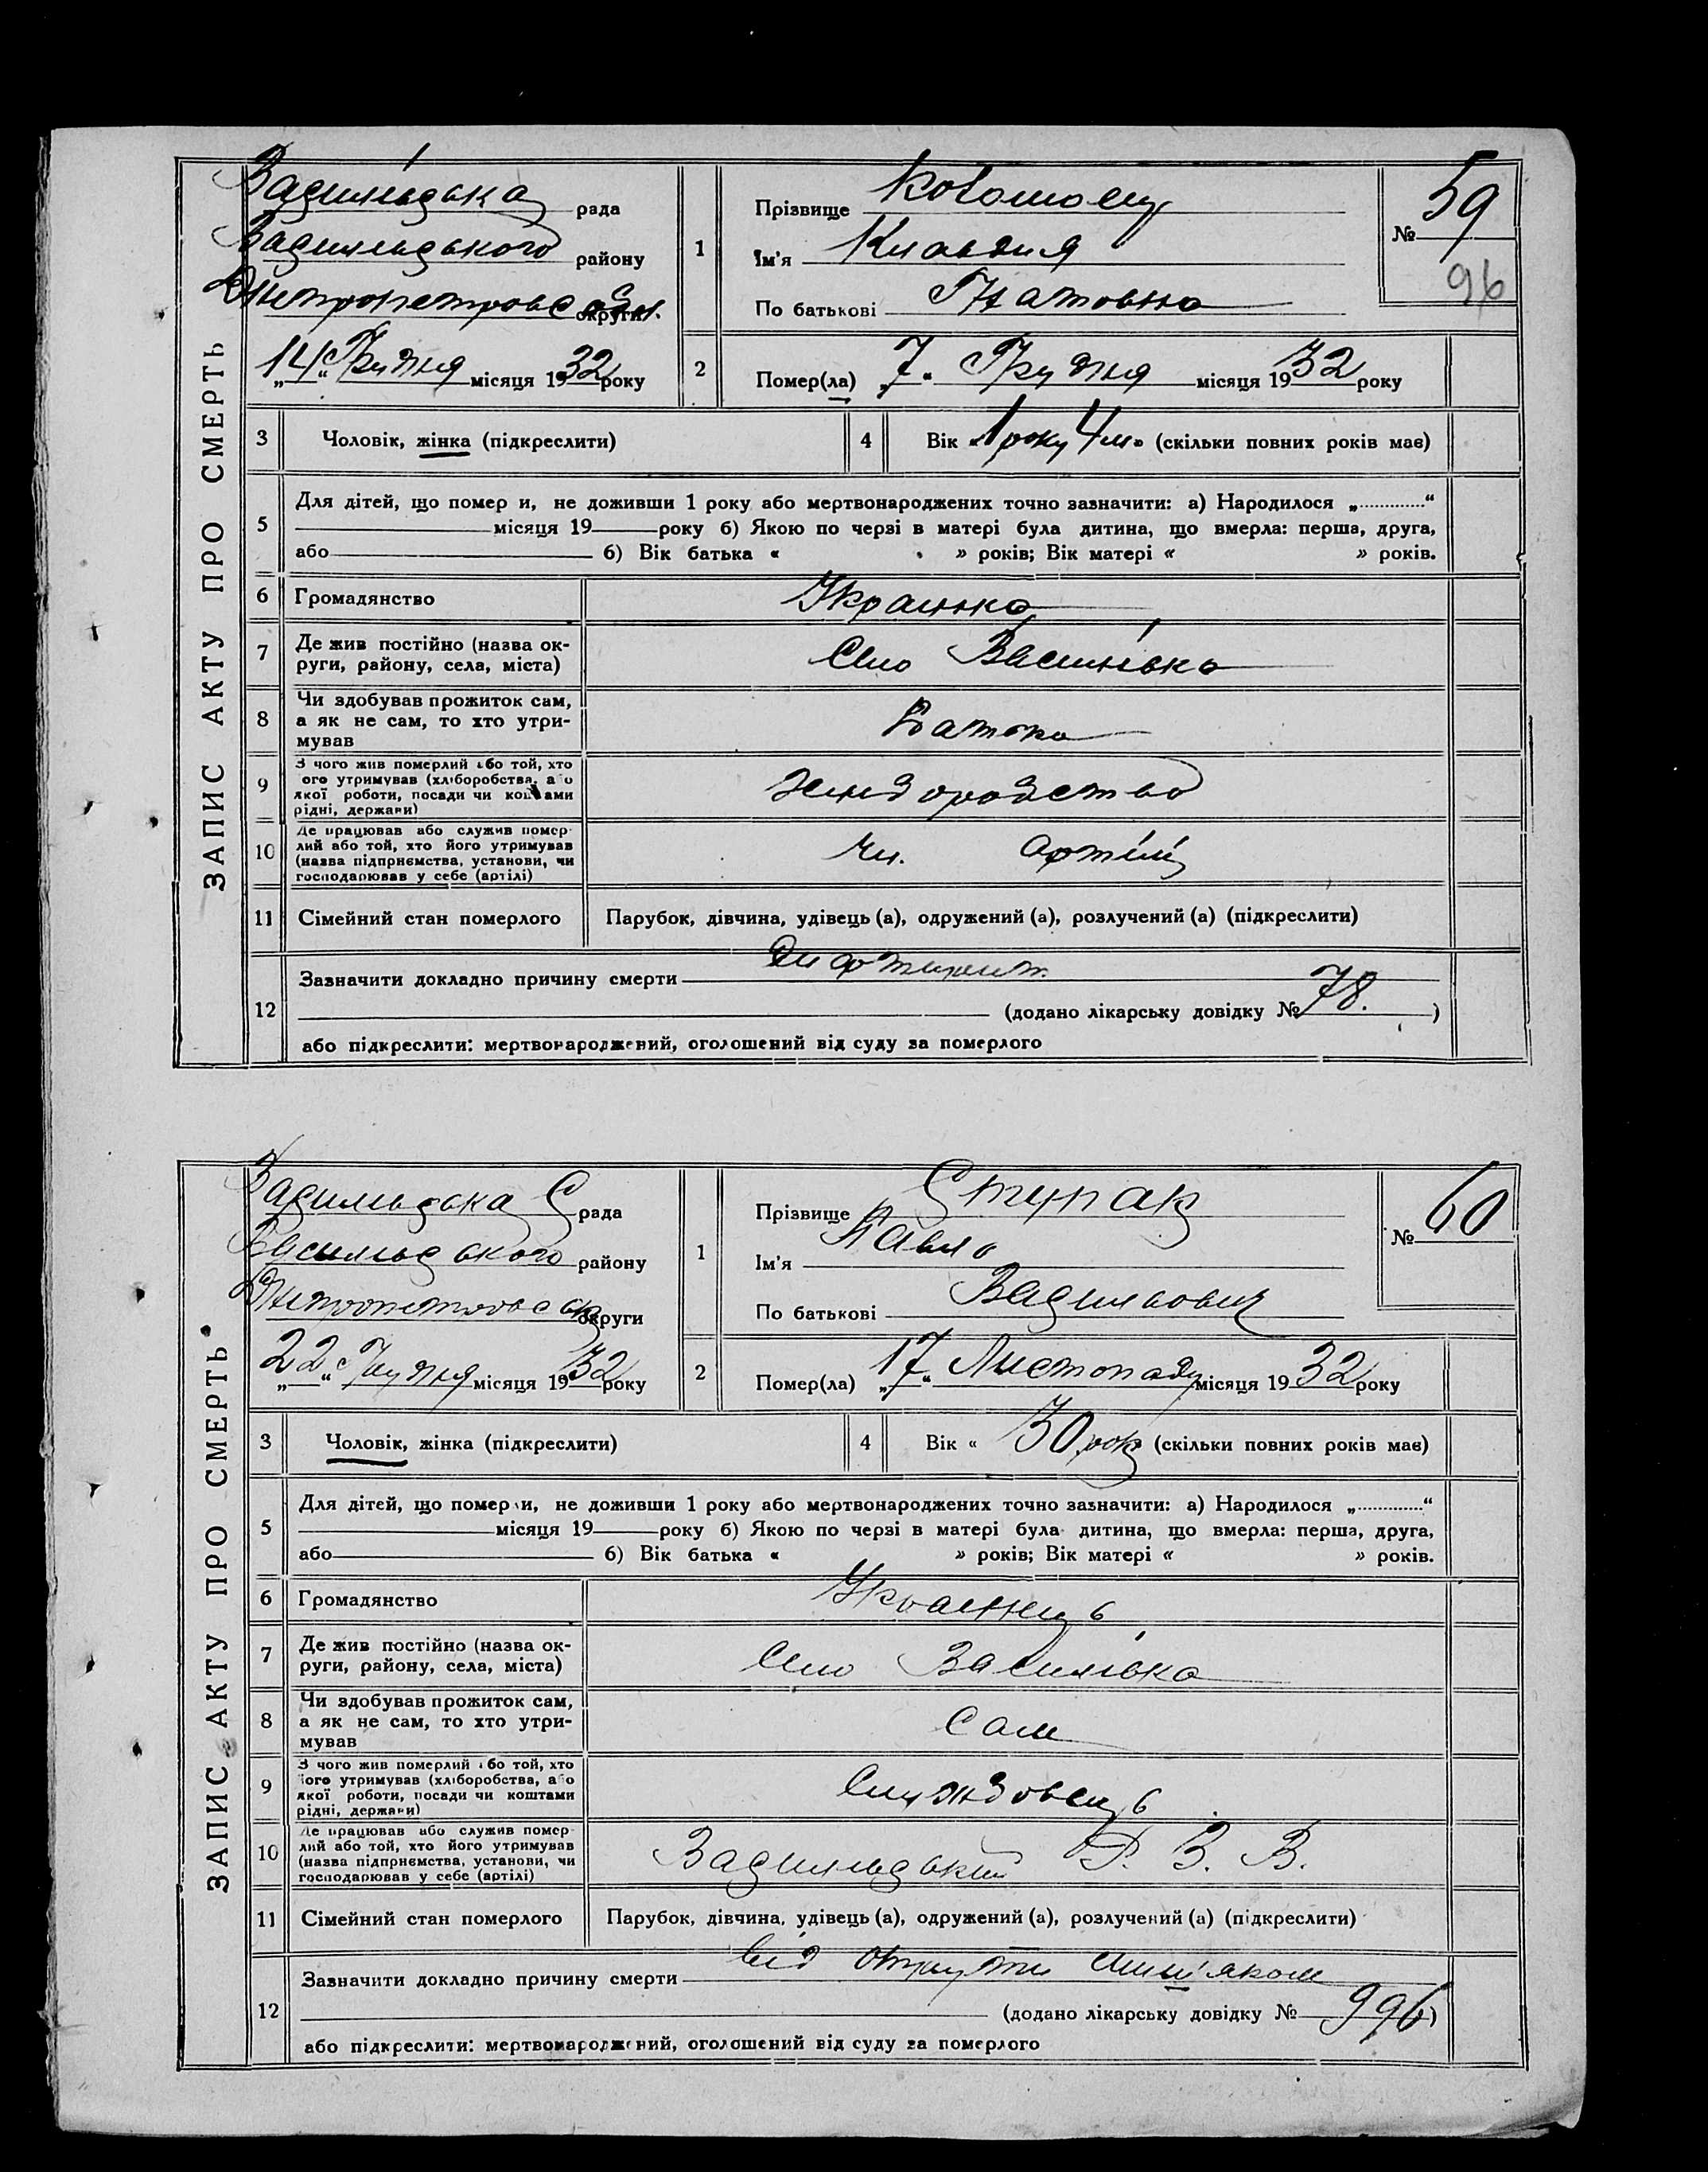 ЗАПИС АКТУ ПРО СМЕРТЬ
Васильівська рада
Васильівського району
Днепропетровс округи
„14“ Грудня місяця 1932 року
1
Прізвище
Ім'я Клавдия
По батькові Гнатовна
№ 59
96
2
Помер(ла) „7“ Грудня місяця 1932 року
3
Чоловік, жінка (підкреслити)
4
Вік «1 року 4 м» (скільки повних років має)
5
Для дітей, що помер и, не доживши 1 року або мертвонароджених точно зазначити: а) Народилося „............“
місяця 19 року б) Якою по черзі в матері була дитина, що вмерла: перша, друга,
або 6) Вік батька « » років; Вік матері « » років.
6
Громадянство Украинка
7
Де жив постійно (назва ок-
руги, району, села, міста) Село Васлівка
8
Чи здобував прожиток сам,
а як не сам, то хто утри-
мував Батько
9
З чого жив померлий або той, хто
його утримував (хліборобства, або
якої роботи, посади чи коштами
рідні, держави)
10
Де працював або служив помер-
лий або той, хто його утримував
(назва підприємства, установи, чи
господарював у себе (артілі) Чл. Артілі
11
Сімейний стан померлого Парубок, дівчина, удівець (а), одружений (а), розлучений (а) (підкреслити)
12
Зазначити докладно причину смерти Дифтирит.
(додано лікарську довідку № 78. )
або підкреслити: мертвонароджений, оголошений від суду за померлого
ЗАПИС АКТУ ПРО СМЕРТЬ
Васильівська С рада
Васильівського району
Днепропетровс округи
„22“ Грудня місяця 1932 року
1
Прізвище Ступак
Ім'я Павло
По батькові Васильович
№ 60
2
Помер(ла) „17“ Листопаду місяця 1932 року
3
Чоловік, жінка (підкреслити)
4
Вік « 30 рок (скільки повних років має)
5
Для дітей, що помер и, не доживши 1 року або мертвонароджених точно зазначити: а) Народилося „............“
місяця 19 року б) Якою по черзі в матері була дитина, що вмерла: перша, друга,
або 6) Вік батька « » років; Вік матері « » років.
6
Громадянство Украинець
7
Де жив постійно (назва ок-
руги, району, села, міста) Село Василівка
8
Чи здобував прожиток сам,
а як не сам, то хто утри-
мував Сам
9
З чого жив померлий або той, хто
його утримував (хліборобства, або
якої роботи, посади чи коштами
рідні, держави) Службовець
10
Де працював або служив помер-
лий або той, хто його утримував
(назва підприємства, установи, чи
господарював у себе (артілі) Васильівський Р. В. В.
11
Сімейний стан померлого Парубок, дівчина, удівець (а), одружений (а), розлучений (а) (підкреслити)
12
Зазначити докладно причину смерти від отрути миш'яком
(додано лікарську довідку № 996)
або підкреслити: мертвонароджений, оголошений від суду за померлого